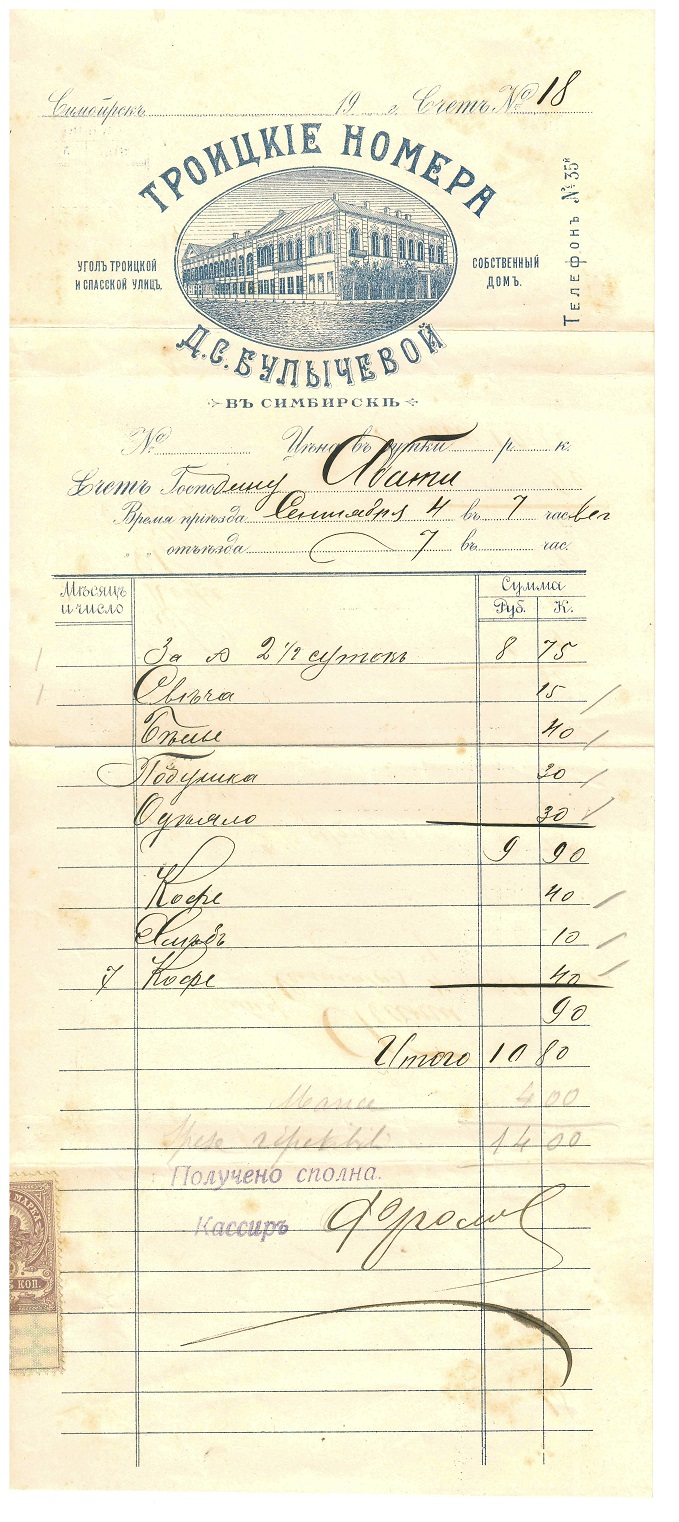 Симбирскъ 19 г. Счетъ № 18
ТРОИЦКІЕ НОМЕРА
Телефонъ № 35й
УГОЛЪ ТРОИЦКОЙ
И СПАССКОЙ УЛИЦЪ.
СОБСТВЕННЫЙ
ДОМЪ.
Д.С. БУЛЫЧЕВОЙ
ВЪ СИМБИРСКѢ
№ Цѣна въ сутки р. к.
Счетъ Господину Абати
Время пріѣзда Сентября 4 въ 7 час веч
„ „ отъѣзда 7 въ час.
Мѣсяцъ и число Сумма
Руб. К.
За 2 1/2 сутокъ 8 75
Свѣча 15
Бѣлье 40
Подушка 30
Одѣяло 30
9 90
Кофе 40
Хлѣбъ 10
7 Кофе 40
90
Итого 10 80
Mance 4 00
Spese ripetibili 14 00
Получено сполна.
Кассиръ Фролов
МАРК
5 КОП.